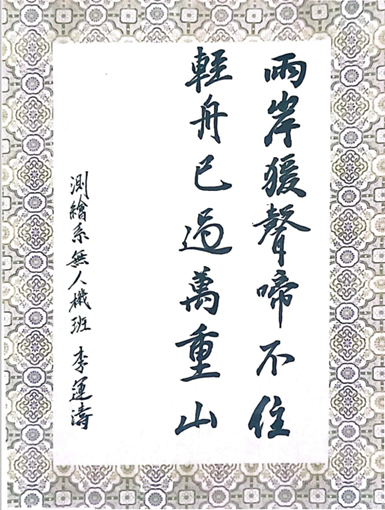 兩岸猨聲啼不住
輕舟已過萬重山
測繪系無人機班 李運濤